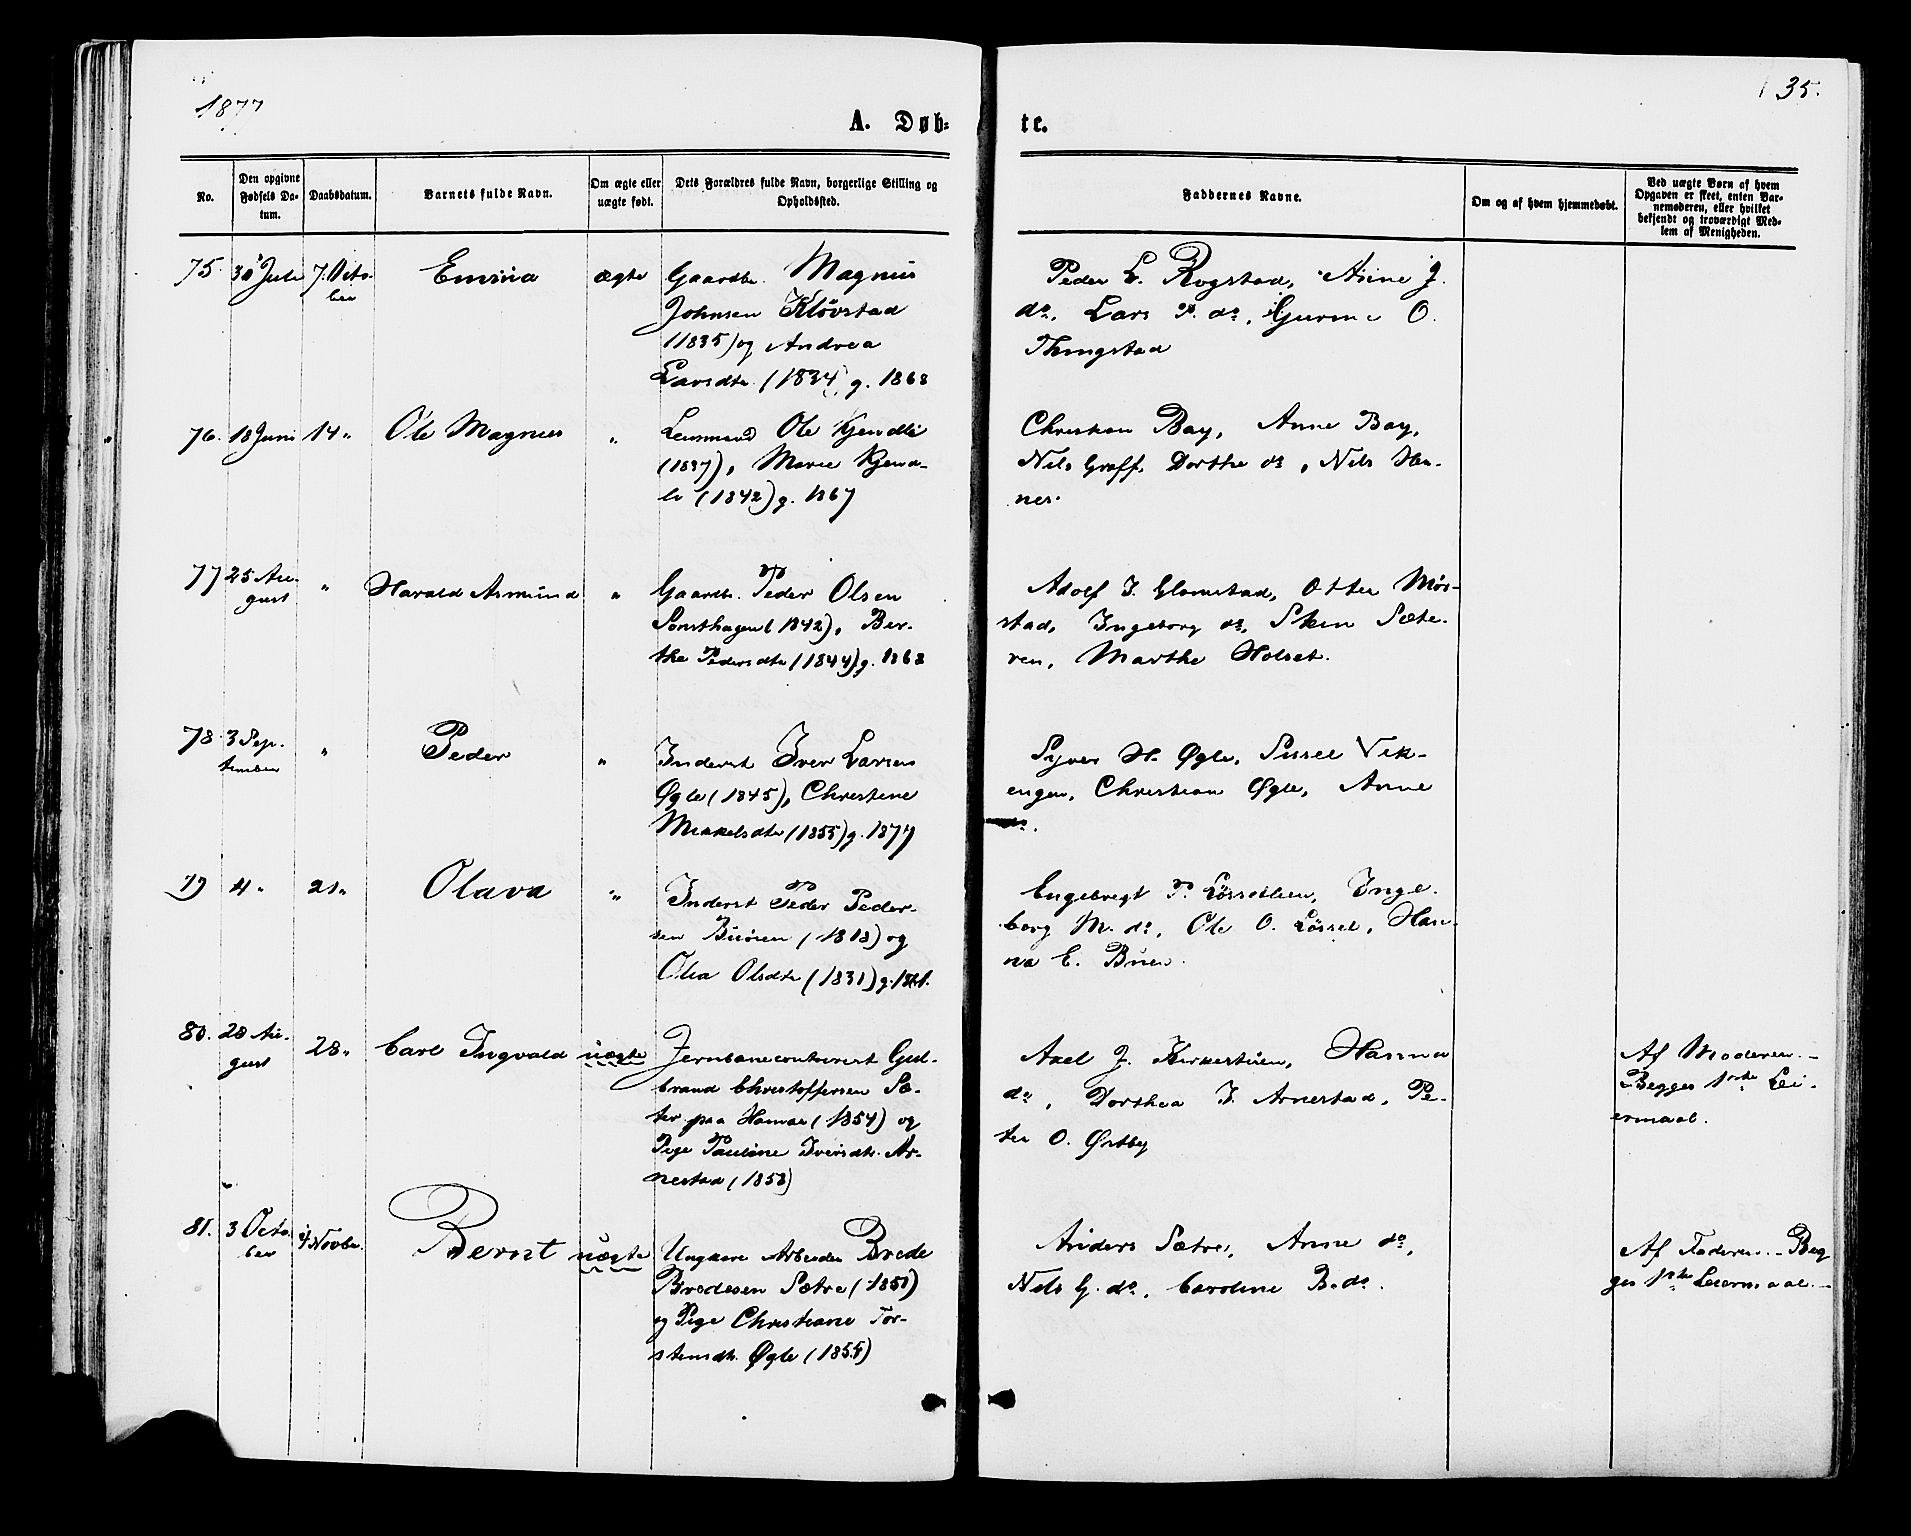 1877
35.
A. Døb-
te.
No.
Den opgivne
Fødsels Da-
tum.
Daabsdatum.
Barnets fulde Navn.
Om ægte eller
uægte født.
Dets Forældres fulde Navn, borgerlige Stilling og
Opholdssted.
Faddernes Navne.
Om og af hvem hjemmedøbt.
Ved uægte Børn af hvem
Opgaven er skeet, enten Bar-
nemoderen, eller hvilket
bekjendt og troværdigt Med-
lem af Menigheden.
75.
30 Juli
7. Octo-
ber
Emina
ægte
Gaardbr. Magnus
Johnsen Kløvstad
(1835) og Andrea
Larsdtr. (1834) g. 1868
Peder L. Rogstad, Anne J.
do, Lars P. do, Gurine O.
Thingstad
76.
18 Juni
14 "
Ole Magnus
"
Lensmand Ole Kjendli
(1837), Marie Kjend-
li (1842) g. 1867
Christian Bay, Anne Bay,
Nils Graff, Dorthe do, Nils Ha-
nes.
77
25 Au-
gust
"
Harald Asmund
"
Gaardbr. Peder Olsen
Sønsthagen (1842), Ber-
the Pedersdtr (1844) g. 1868
Adolf I. Glomstad, Otter Mør-
stad, Ingeborg do, Sten Sæte-
ren, Marthe Holset.
78.
3 Sep-
tember
"
Peder
"
Inderst Iver Larsen
Øgle (1845), Christine
Mikelsdtr (1855) g. 1877
Syver H. Øgle, Sissel Vik-
engen, Christian Øgle, Anne
do.
79
4 "
21 "
Olava
"
Inderst Peder Peder-
sen Buøien (1818) og
Olea Olsdtr (1831) g. 1861.
Engebregt P. Løssetlien, Inge-
borg M. do, Ole O. Løsset, Han-
na E. Buen.
80.
28 Au-
gust
28 "
Carl Ingvald
uægte
Jernbanecontorist Gud-
brand Christoffersen Sæ-
ter paa Hamar (1854) og
Pige Pauline Iversdtr. Ar-
nestad (1858)
Axel J. Kirkestuen, Hanna
do, Dorthea I. Arnestad, Pe-
ter O. Østby
Af Moderen. -
Begges 1ste Lei-
ermaal.
81.
3 Octo-
ber
4 Novbr.
Bernt
uægte
Ungkarl Arbeider Brede
Bredesen Sætre (1851)
og Pige Christiane Tor-
stensdtr. Øgle (1855)
Anders Sætre, Anne do,
Nils G. do, Caroline B. do.
Af Faderen. - Beg-
ges 1ste Leiermaal. -